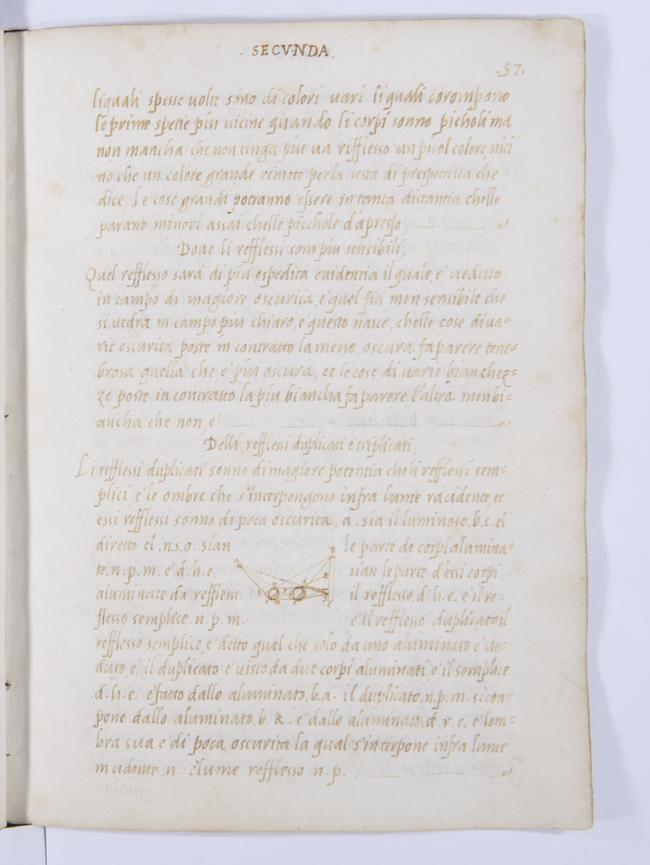 . SECVNDA .
.57.
liquali spesse uolte sono di colori uari li quali corompono
le prime spetie piu uicine quando li corpi sonno picholi ma
non mancha che non tinga piu un rifflesso un picol colore, uici
no che un colore grande remoto per la sesta di prespectiua che
dice Le cose grandi potranno essere in tanta distantia chelle
parano minori assai chelle picchole d'apresso
Doue li refflessi som piu sensibili,
Quel refflesso sara di piu espedita euidentia il quale, e, ueduto
in campo di magiore oscurita, e quel fia men sensibile che
si uedra in campo piu chiaro, e questo nasce, chelle cose di ua=
rie oscurita poste in contratto la meno, oscura fa parere tene=
brosa quella che e piu oscura, et le cose di uarie bianchez=
ze poste in contratto la piu biancha fa parere l'altra men bi=
ancha che non e'
Delli refflessi duplicati e triplicati
Li refflessi duplicati sonno di magiore potentia che li refflessi sem=
plici, e le ombre che s'interpongono infra lume racidente, et
essi refflessi sonno di poca oscurita, a . sia il luminoso. b. c. el
diretto el .n.s.o. sian le parte de corpi alumina=
te. n. p. m. e d. h. e. sian le parte d'essi corpi
aluminate da refflessi il refflesso. d. h. e. e il re=
flesso semplice. n. p. m. e il refflesso duplicato il
refflesso semplice, e detto quel che solo da uno aluminato e ue=
duto e, il duplicato e uisto da due corpi aluminati e il semplice
d. h. e. e fatto dallo aluminato. b. a. il duplicato. n. p. m. si con=
pone dallo aluminato. b. R. e dallo aluminato. d. r. e. e lom=
bra sua e di poca oscurita la qual s'interpone infra lume
incidente .n. e lume refflesso .n.p.